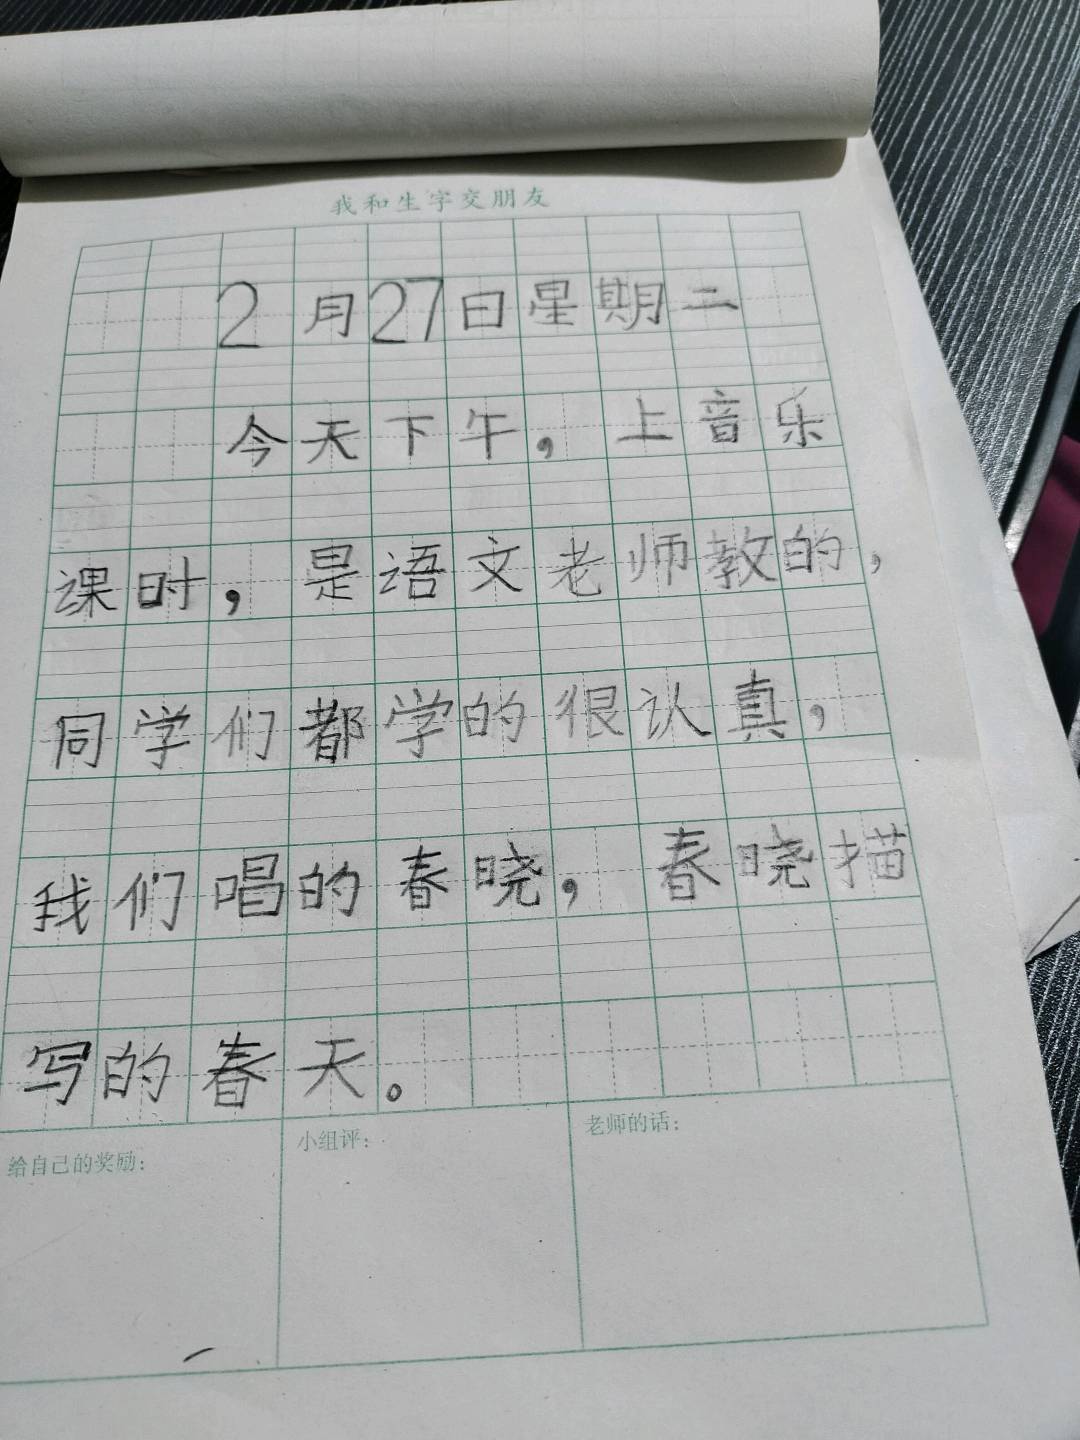 我和生字交朋友
2月27日星期二
今天下午，上音乐
课时，是语文老师教的，
同学们都学的很认真，
我们唱的春晓，春晓描
写的春天。
给自己的奖励：
小组评：
老师的话：